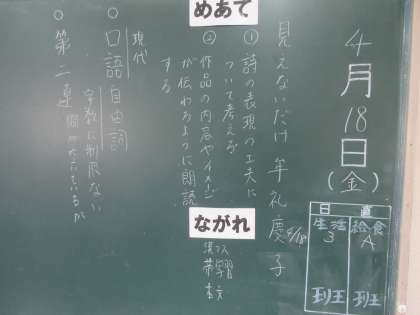 4月18日(金)
日直
生活 給食
3 A
班 班
見えないだけ 牟礼慶子
4/18
めあて
① 詩の表現の工夫に
ついて考える
② 作品の内容やイメージ
が伝わるように朗読
する
ながれ
漢スコ
帯学習
本文
現代
○ 口語自由詞
字数に制限ない
○ 第二連